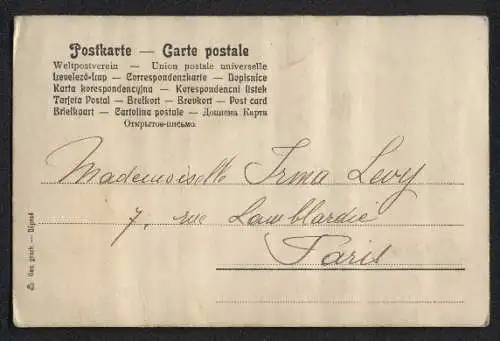 Postkarte — Carte postale
Weltpostverein — Union postale universelle
Levelező-Lap — Correspondenzkarte — Dopisnice
Karta korespondencyjna — Korespondencni listek
Tarjeta Postal — Brefkort — Brevkort — Post card
Briefkaart — Cartolina postale — Дописна Карта
Открытое-письмо.
Mademoiselle Irma Levy
7, rue Lamblardie
Paris
Ges. gesch. — Déposé